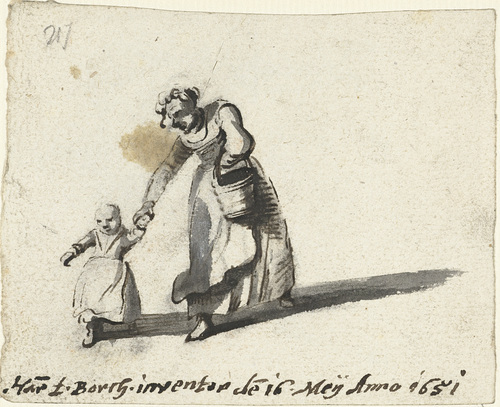 21
Har t. Borch. inventor dē 16. Meÿ Anno 1651